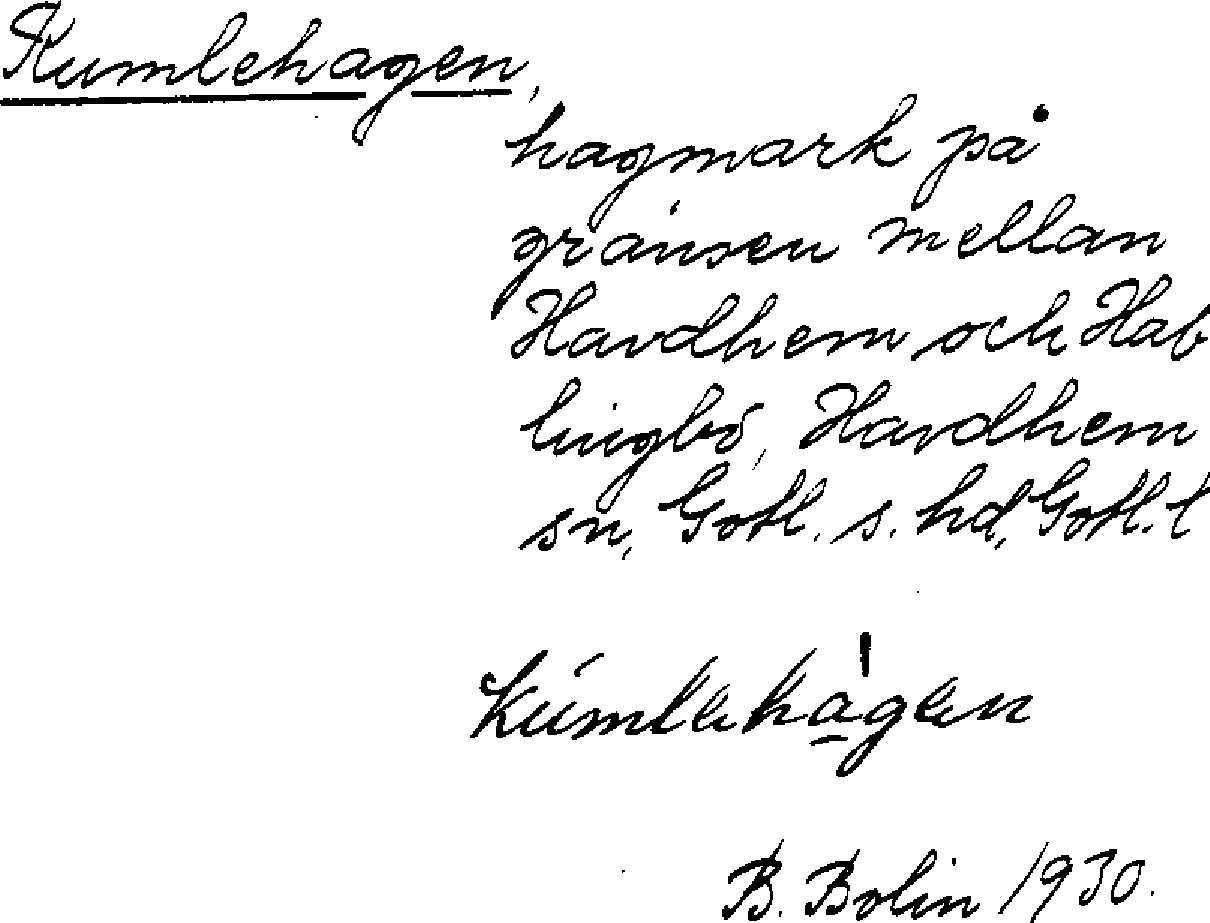 Kumlehagen,
hagmark på
gränsen mellan
Havdhem och Hab
lingbo, Havdhem
sn, Gotl. s. hd, Gotl. l
kúmlehàgen
B. Bolin 1930.